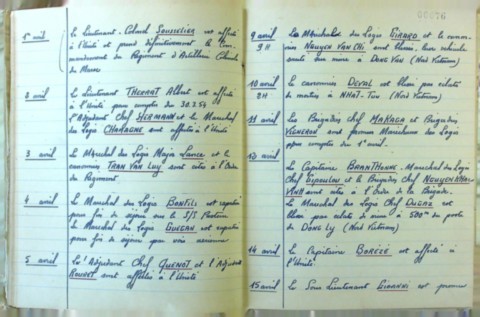 1er avril Le Lieutenant-Colonel SOUSSELIER est affecté
à l'Unité et prend définitivement le Com-
mandement du Régiment d'Artillerie Coloniale
du Maroc
2 avril Le Lieutenant THENANT Albert est affecté
à l'Unité pour compter du 30.2.54
l'Adjudant Chef HERMANN et le Marechal
des Logis CHAROGNE sont affectés à l'Unité
3 avril Le Maréchal des Logis Major LANCE et le
canonnier TRAN VAN LUY sont cités à l'Ordre
du Régiment
4 avril Le Marechal des Logis BONFILS est rapatrié
pour fin de séjour sur le S/S Pasteur
Le Marechal des Logis GUEGAN est rapatrié
pour fin de séjour par voie aérienne
5 avril L'Adjudant Chef QUENOT et l'Adjudant
sont affectés à l'Unité
9 avril Le Maréchal des Logis GIRARD et le canon-
9H nier NGUYEN VAN CHI sont blessés, leur véhicule
sauté sur mine à DONG VAN (Nord Vietnam)
10 avril Le canonnier DEVAL est blessé par éclats
2H de mortier à NHAT-TUU (Nord Vietnam)
11 avril Les Brigadiers chef MAKAGA et Brigadier
VIGNERON sont nommés Marechaux des Logis
pour compter du 1er avril.
12 avril
Le Capitaine BRANTHONNE, Marechal des Logis
Chef et le Brigadier Chef NGUYEN
ANH sont cités à l'Ordre de la Brigade.
Le Marechal des Logis Chef DUGAZ est
blessé par éclats de mine à 500m du poste
de DONG LY (Nord Vietnam)
14 avril Le Capitaine BOREZE est affecté à
l'Unité
15 avril Le Sous Lieutenant GIOANNI est promu